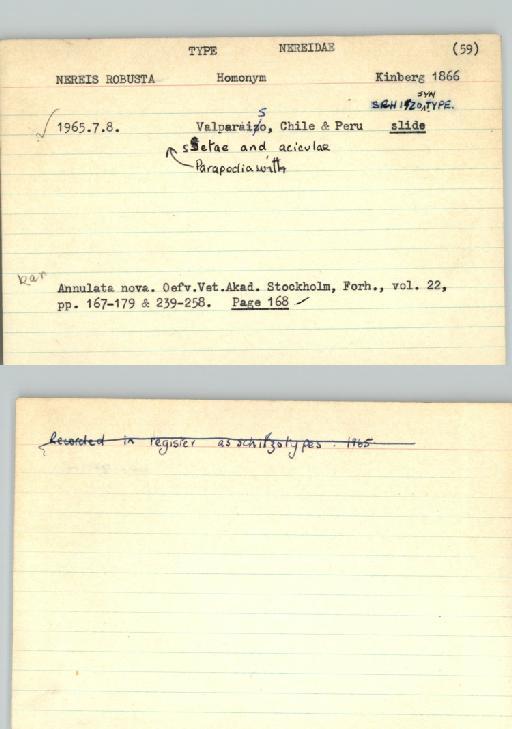 TYPE NEREIDAE (59)
NEREIS ROBUSTA Homonym Kinberg 1866
SYN
TYPE.
1965.7.8. Valparaiso, Chile & Peru slide
Setae and aciculae
Parapodia with
Annulata nova. Oefv.Vet.Akad. Stockholm, Forh., vol. 22,
pp. 167-179 & 239-258. Page 168
Recorded in register as schitzotypes. 1965